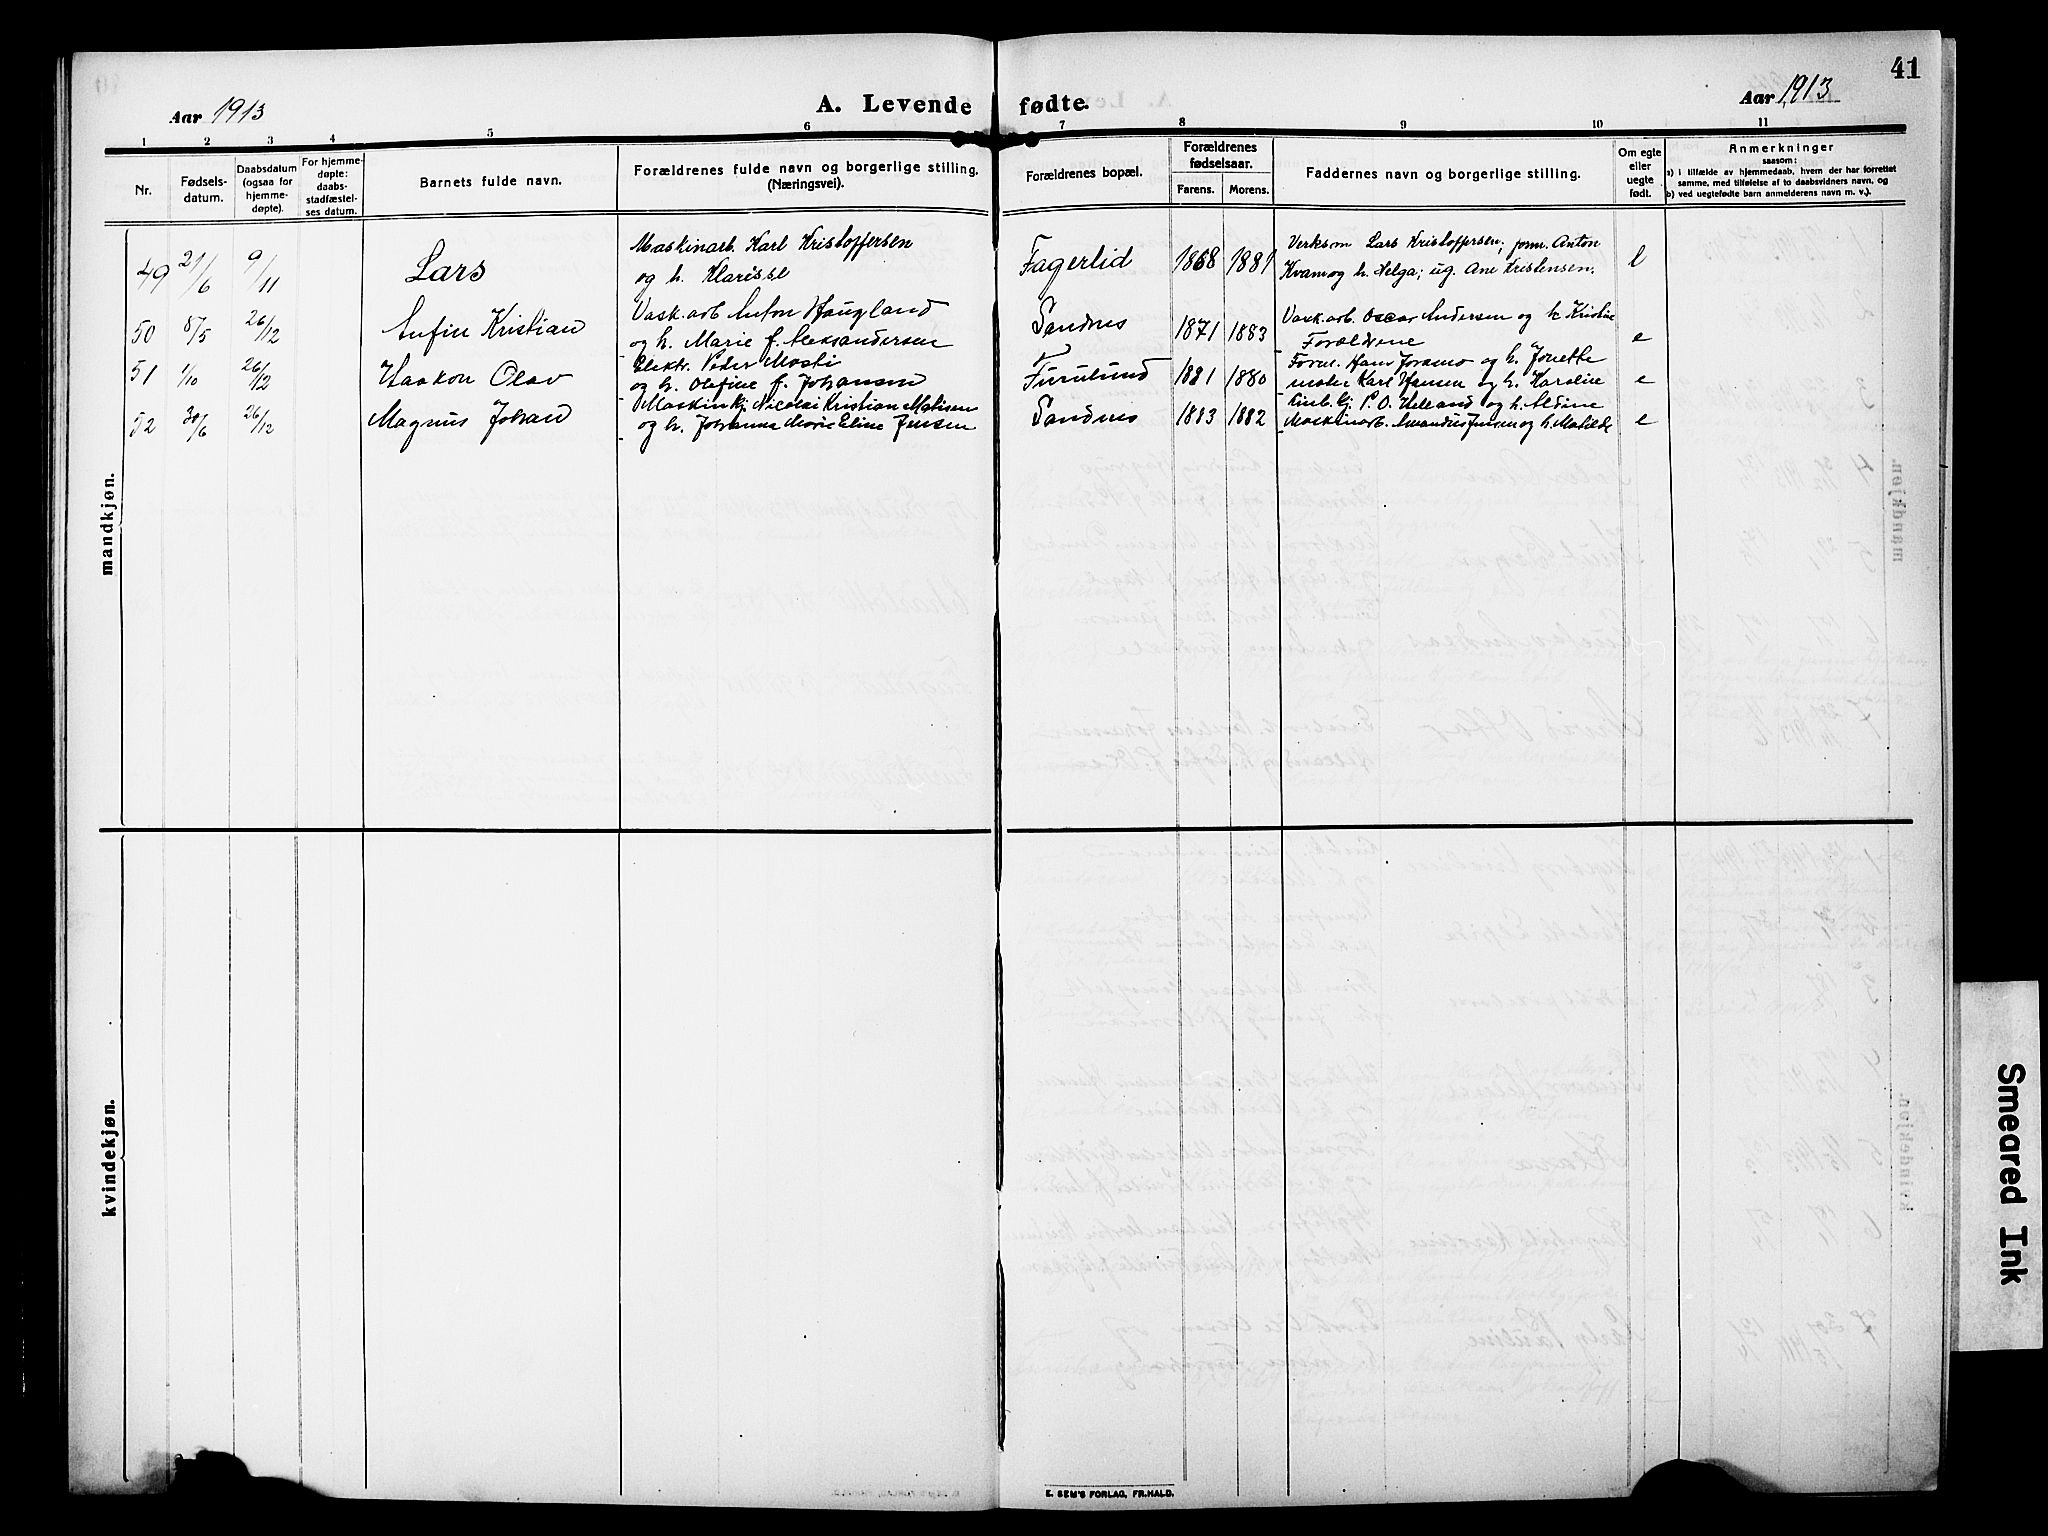 41
Aar 1913
A. Levende fødte.
Aar 1913
1 2 3 4 5 6 7 8 9 10 11
Nr.
Fødsels-
datum.
Daabsdatum
(ogsaa for
hjemme-
døpte).
For hjemme-
døpte:
daabs-
stadfæstel-
ses datum.
Barnets fulde navn.
Forældrenes fulde navn og borgerlige stilling.
(Næringsvei).
Forældrenes bopæl.
Forældrenes
fødselsaar.
Farens. Morens.
Faddernes navn og borgerlige stilling.
Om egte
eller
uegte
født.
Anmerkninger
saasom:
a) i tilfælde av hjemmedaab, hvem der har forrettet
samme, med tilføielse af to daabsvidners navn, og
b) ved uegtefødte barn anmelderens navn m. v.).
mandkjøn.
49 21/6 9/11 Lars
Maskinarb. Karl Kristoffersen
og h. Klarisse
Fagerlid 1868 1881
Verksm Lars Kristoffersen; Anton
Kvam og h. Helga; ug. Ane Kristensen.
e
50 8/5 26/12 Kristian
Vask.arb Anton Haugland
og h. Marie f. Aleksandersen
Sandnes 1871 1883
Vask.arb. Oscar Andersen og h Kristine
Forældrene
e
51 1/10 26/12 Haakon Olav
Elektr. Peder Mosti
og h. Olefine f. Johansen
Furulund 1881 1880
Hans og h. Jonette
Karl Hansen og h. Karoline
e
52 30/6 26/12 Magnus Johan
Maskinkj. Nicolai Kristian Matisen
og h. Johanna Marie Eline Jensen
Sandnes 1883 1882
P. O. Helland og h. Aldine
Maskinarb. Amandus Jensen og h. Matilde
e
kvindekjøn.
E. SEM'S FORLAG, FR.HALD.
Smeared Ink